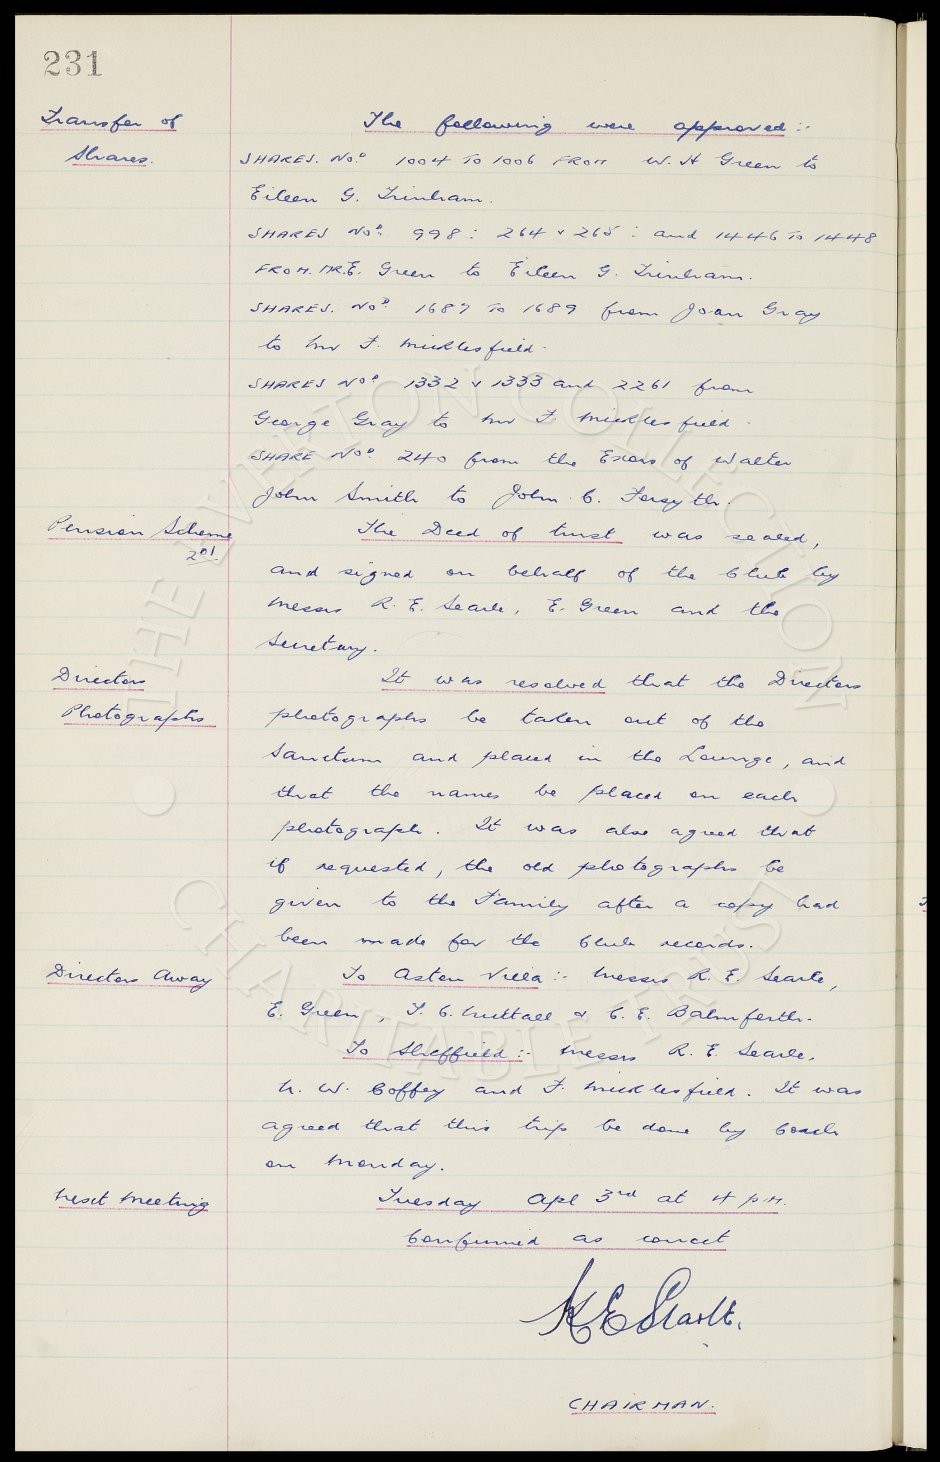 231
Transfer of The following were approved :-
Shares. SHARES. Nos 1004 To 1006 FROM W. H Green to
Eileen G. Trinham.
SHARES Nos 998 : 264 & 265 : and 1446 To 1448
FROM. MR. E. Green to Eileen G. Trinham.
SHARES. Nos 1687 To 1689 from Joan Gray
to Mr F. Micklesfield.
SHARES Nos 1332 & 1333 and 2261 from
George Gray to Mr F. Micklesfield.
SHARE No. 240 from the Exors of Walter
John Smith to John. C. Forsyth.
Pension Scheme The Deed of trust was sealed,
and signed on behalf of the Club by
Messrs R. E. Searle, E. Green and the
Secretary.
Directors It was resolved that the Directors
Photographs photographs be taken out of the
Sanctum and placed in the Lounge, and
that the names be placed on each
photograph. It was also agreed that
if requested, the old photographs be
given to the Family after a copy had
been made for the Club records.
Directors Away To Aston Villa :- Messrs R. E. Searle,
E. Green, T. C. Nuttall & C. E. Balmforth.
To Sheffield :- Messrs R. E. Searle,
N. W. Coffey and F. Micklesfield. It was
agreed that this trip be done by Coach
on Monday.
Next Meeting Tuesday Apl 3rd at 4 p.m.
Confirmed as correct
CHAIRMAN.
THE EVERTON COLLECTION
CHARITABLE TRUST